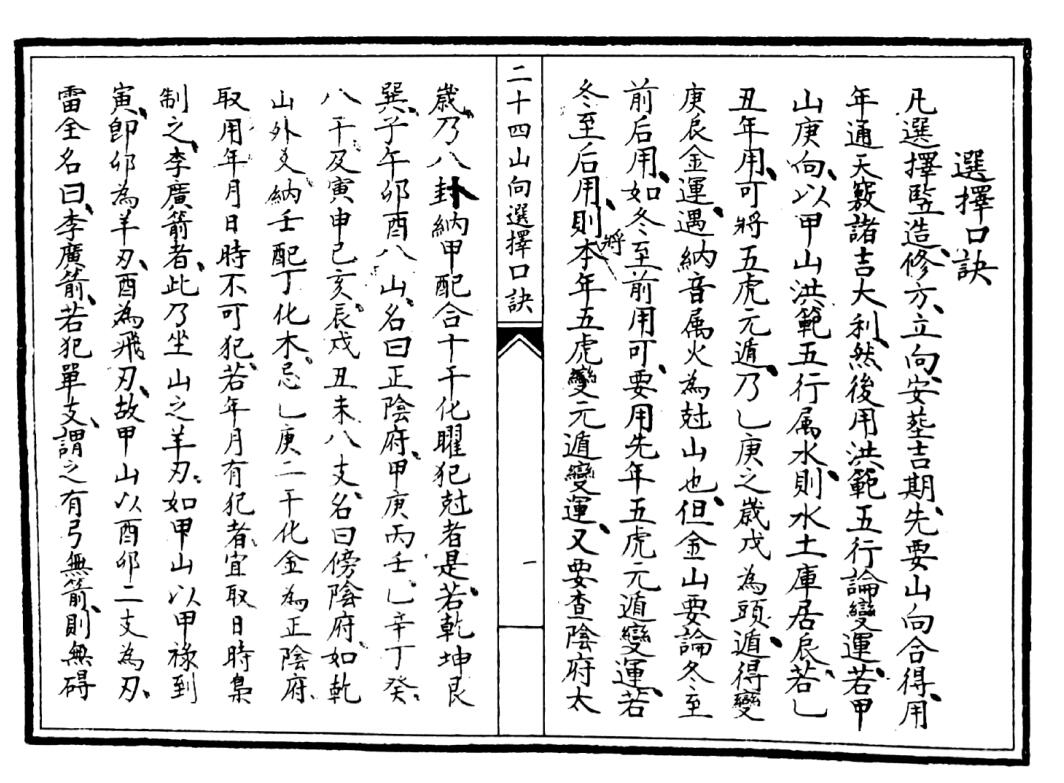 選擇口訣
凡選擇豎造、修方、立向、安葬吉期、先要山向合得、用
年通天竅諸吉大利、然後用洪範五行論變運、若甲
山庚向、以甲山洪範五行属水、則水土庫居辰、若乙
丑年用、可將五虎元遁、乃乙庚之歲戊為頭、遁得變
庚辰金運、遇納音属火為尅山也、但金山要論冬至
前后用、如冬至前用可、要用先年五虎元遁變運、若
冬至后用、則將本年五虎變元遁變運、又要查陰府太
二十四山向選擇口訣
一
歲、乃八封卦納甲配合十干化曜犯尅者是、若乾坤艮
巽、子午卯酉八山、名曰正陰府、甲庚丙壬、乙辛丁癸、
八干、及寅申巳亥、辰戌丑未八支、名曰傍陰府、如乾
山外爻納壬、配丁化木、忌乙庚二干化金為正陰府、
取用年月日時不可犯、若年月有犯者、宜取日時梟
制之、李廣箭者、此乃坐山之羊刃、如甲山以甲祿到
寅、卽卯為羊刃、酉為飛刃、故甲山以酉卯二支為刃、
雷全名曰、李廣箭、若犯單支、謂之有弓無箭、則無碍